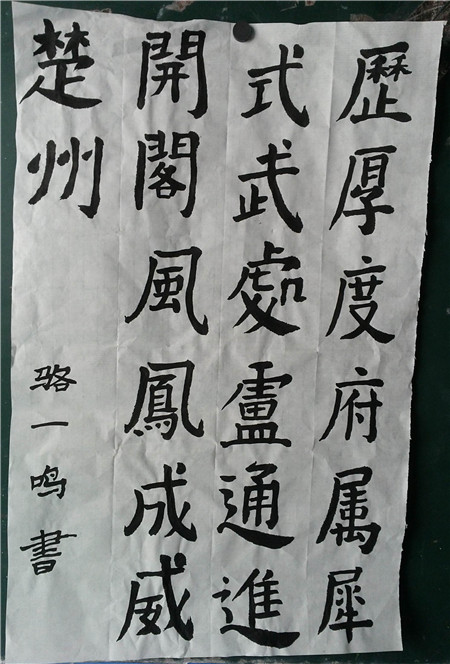 歷厚度府属犀
式武處盧通進
開閣風鳳成威
楚州
骆一鸣書